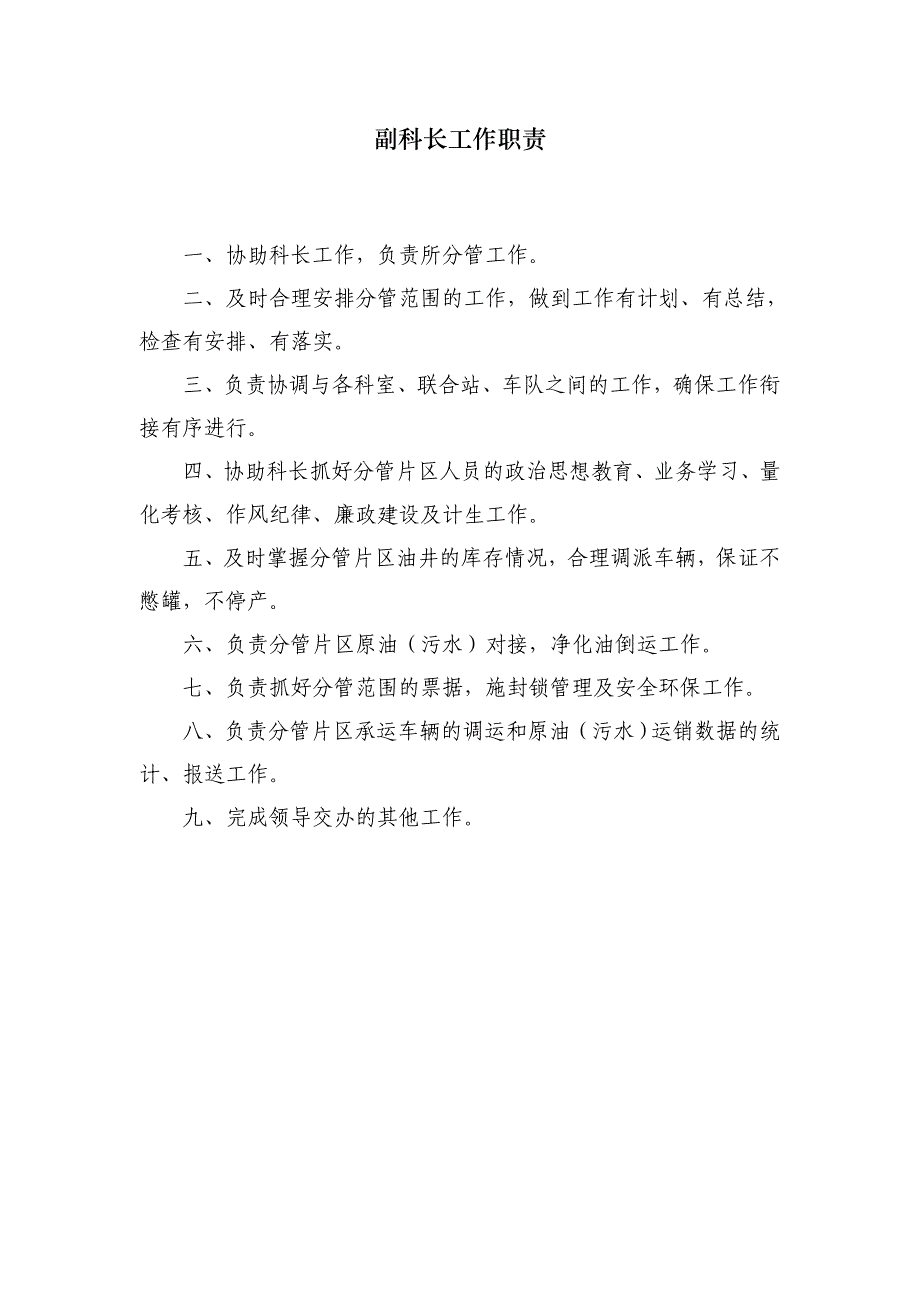 副科长工作职责
一、协助科长工作，负责所分管工作。
二、及时合理安排分管范围的工作，做到工作有计划、有总结，
检查有安排、有落实。
三、负责协调与各科室、联合站、车队之间的工作，确保工作衔
接有序进行。
四、协助科长抓好分管片区人员的政治思想教育、业务学习、量
化考核、作风纪律、廉政建设及计生工作。
五、及时掌握分管片区油井的库存情况，合理调派车辆，保证不
憋罐，不停产。
六、负责分管片区原油（污水）对接，净化油倒运工作。
七、负责抓好分管范围的票据，施封锁管理及安全环保工作。
八、负责分管片区承运车辆的调运和原油（污水）运销数据的统
计、报送工作。
九、完成领导交办的其他工作。